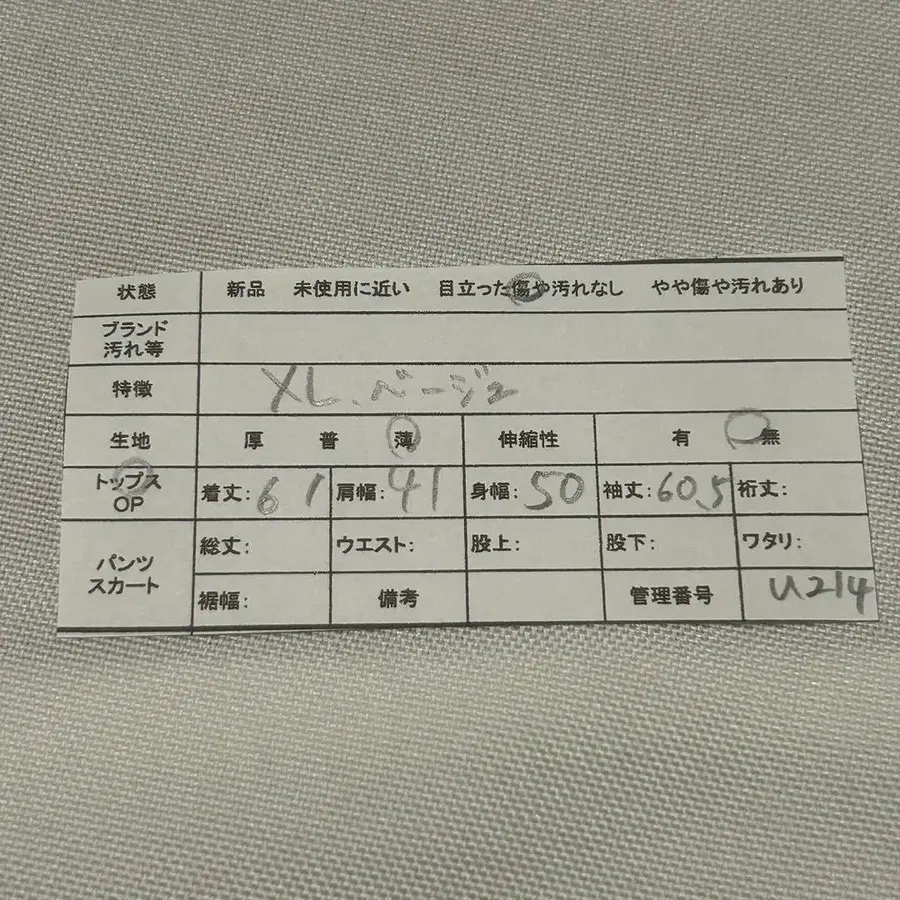 状態 新品 未使用に近い 目立った傷や汚れなし やや傷や汚れあり
ブランド
汚れ等
特徴 XL、ベージュ
生地 厚 普 薄 伸縮性 有 無
トップス
OP
着丈:61 肩幅:41 身幅:50 袖丈:60.5 裄丈:
パンツ
スカート
総丈: ウエスト: 股上: 股下: ワタリ:
裾幅: 備考 管理番号 U214